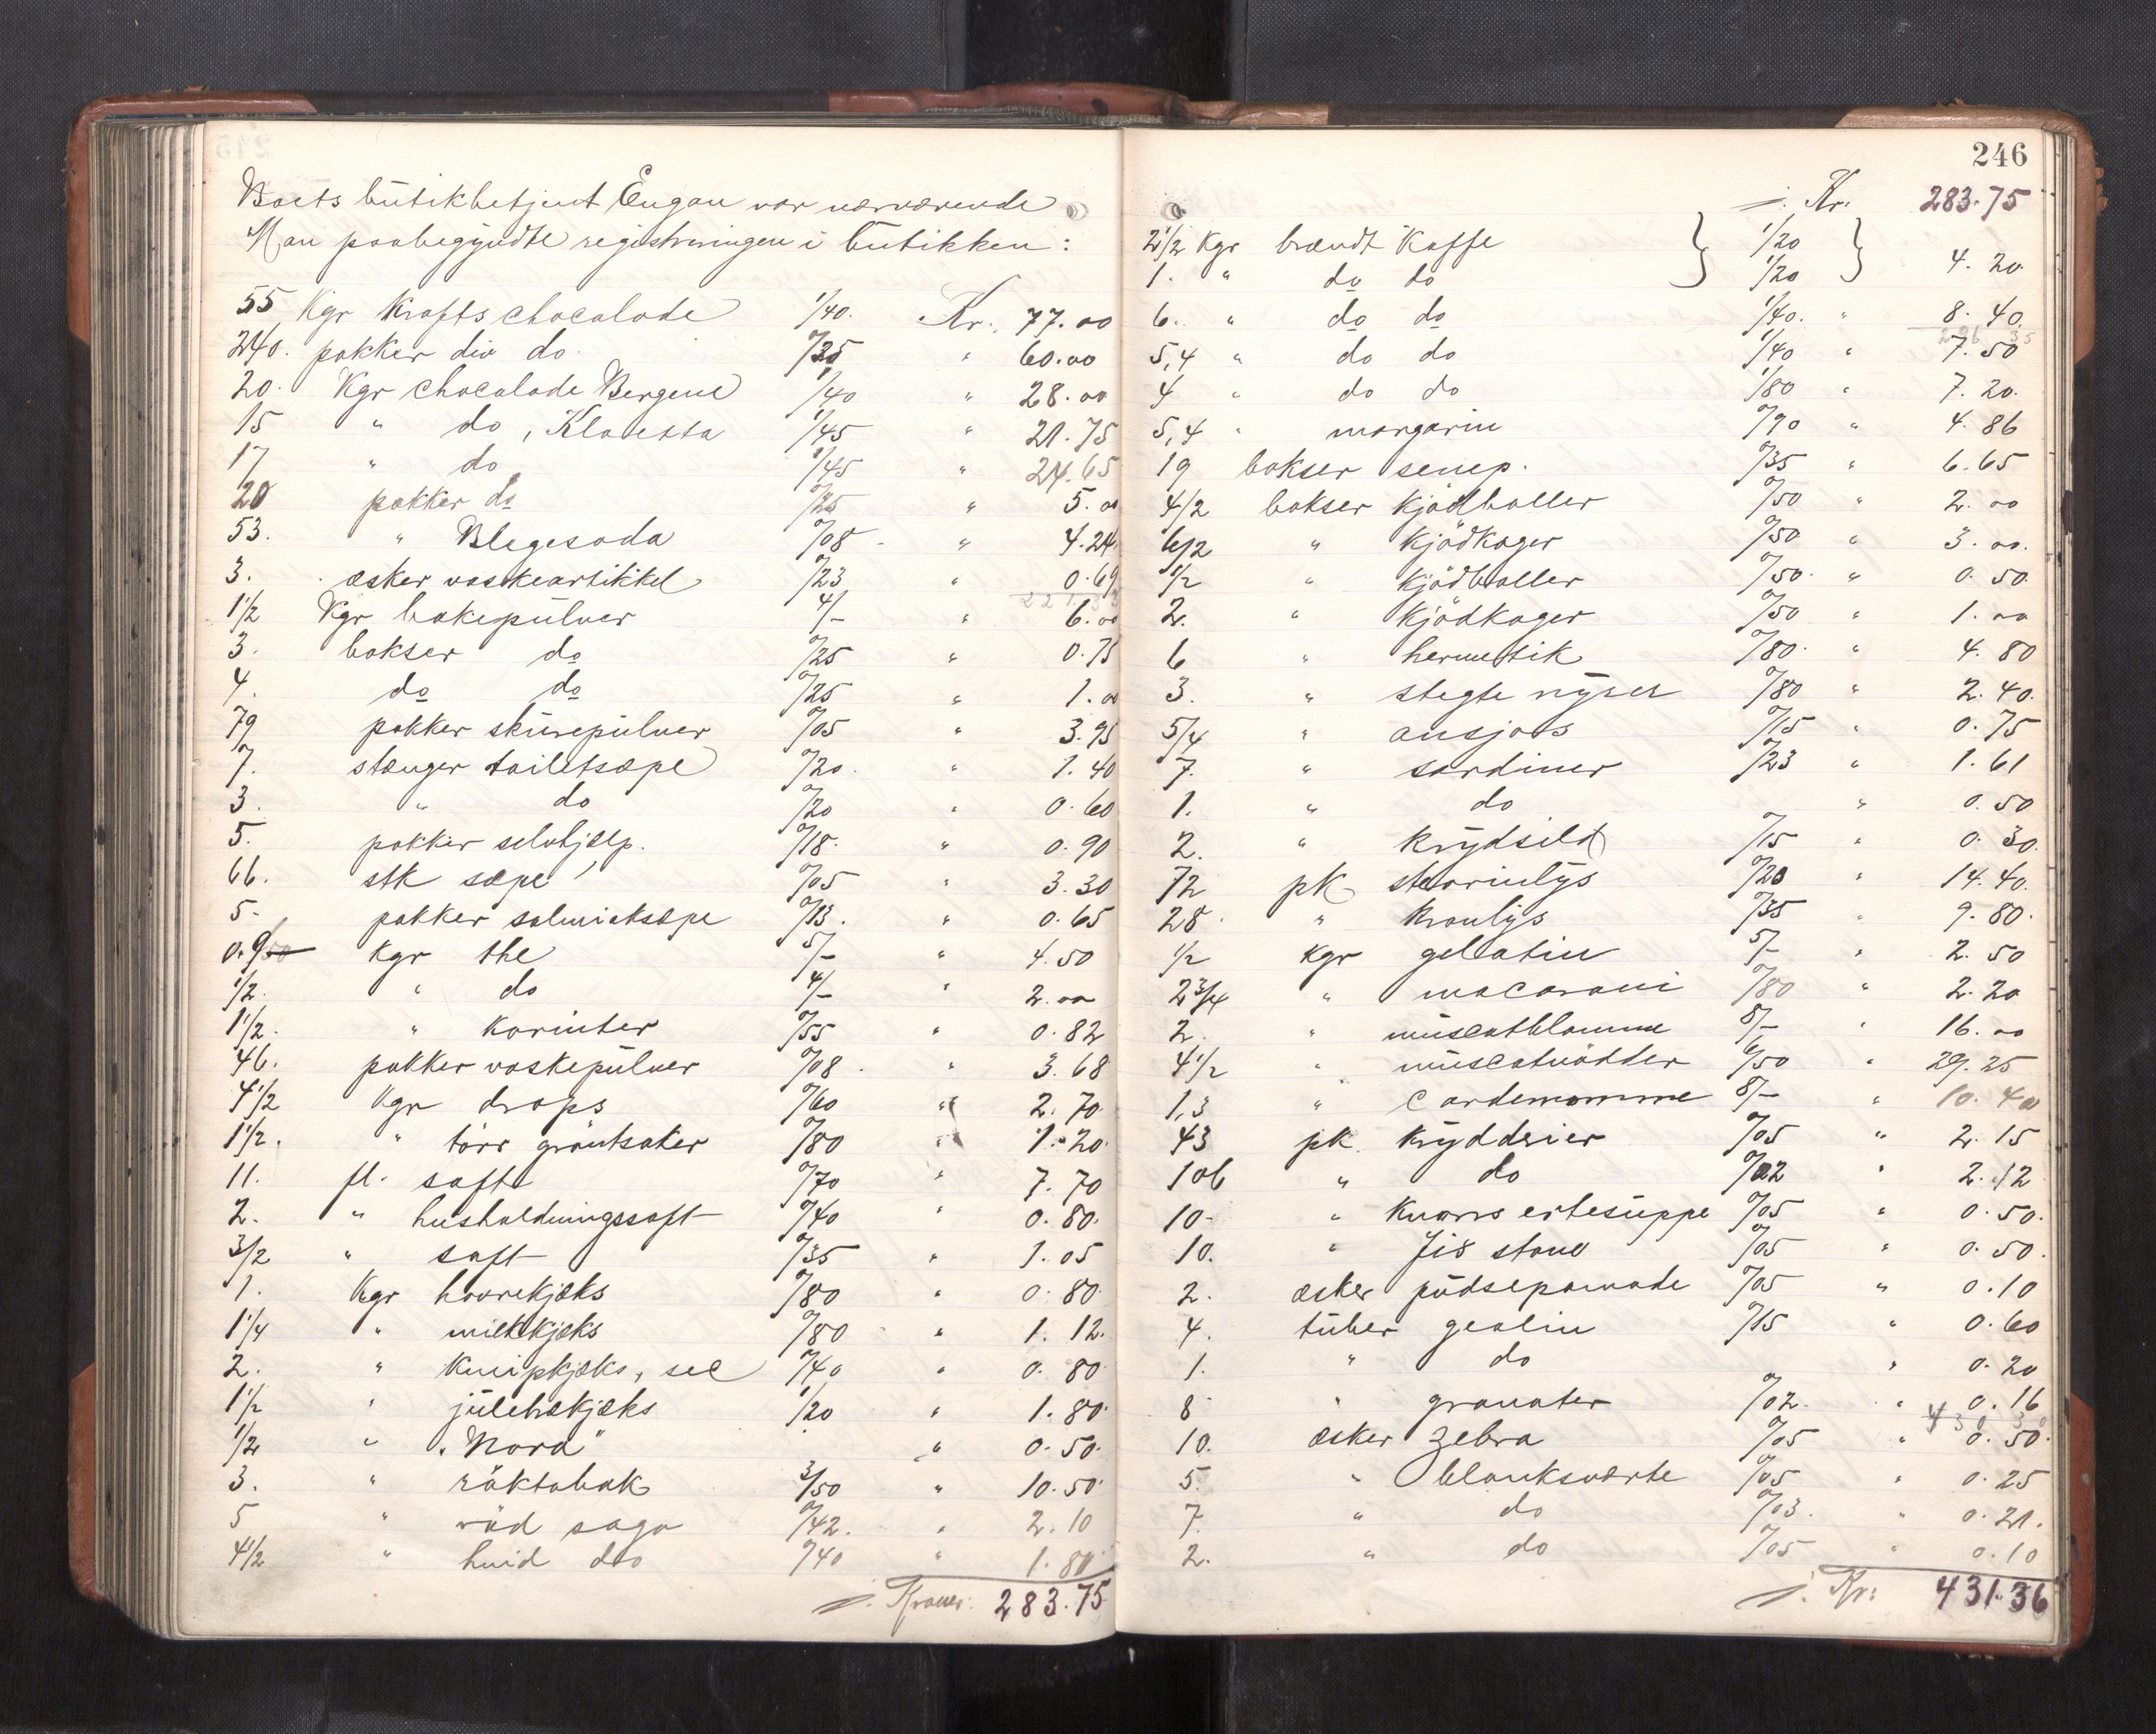 Boets butikbetjent Engan var nærværende
Man paabegyndte registreringen i butikken:
55 Kgr Krafts chocolade 1/40. Kr. 77.00
240. pakker div do. 0/25 " 60.00
20. Kgr chocolade Bergene 1/40 " 28.00
15 " do, Klaessa 1/45 " 21.75
17 " do 1/45 " 24.65
20 pakker do 0/25 " 5.00
53. " Blegesoda 0/08 - " 4.24
3. æsker vaskeartikkel 0/23 " 0.69
1 1/2 Kgr bakepulver 4/- " 6.00
3. bokser do 0/25 " 0.75
4. do do 0/25 " 1.00
79 pakker skurepulver 0/05 " 3.95
7. stænger toiletsæpe 0/20. " 1.40
3. " do 0/20 " 0.60
5. pakker selvhjælp. 0/18. " 0.90
66. stk sæpe 0/05 " 3.30
5. pakker salmiaksæpe 0/13. " 0.65
0.900 Kgr the 5/- " 4.50
1/2. " do 4/- " 2.00
1 1/2. " Korinter 0/55 " 0.82
46. pakker vaskepulver 0/08. " 3.68
4 1/2 Kgr drops 0/60 " 2.70
1 1/2. " törr gröntsaker 0/80 " 1.20
11. fl. saft 0/70 " 7.70
2. " husholdningssaft 0/40 " 0.80.
3/2 " saft 0/35 " 1.05
1. Kgr havrekjæks 0/80 " 0.80
1 1/4 " milkkjæks 0/80 " 1.12.
2. " Knipkjæks, sec 0/40 " 0.80
1 1/2 " julehækjæks 1/20 " 1.80
1/2 " "Nora" " 0.50
3. " röktobak 3/50 " 10.50
5 " röd sago 0/42. " 2.10
4 1/2 " hvid do 0/40 " 1.80
/. Kroner. 283.75
246
/. Kr. 283.75
2 1/2 Kgr brændt Kaffe 1/20
1. " do do 1/20 4.20
6. " do do 1/40. " 8.40
5,4 " do do 1/40 " 7.50
4 " do do 1/80 " 7.20.
5,4 " margarin 0/90 " 4.86
19 bokser senep. 0/35 " 6.65
4/2 bokser Kjödboller 0/50 " 2.00
6/2 " Kjödkager 0/50 " 3.00.
1/2 " Kjödboller 0/50. " 0.50
2. " Kjödkager 0/50 " 1.00
6 " hermetik 0/80. " 4.80
3. " stegte nyrer 0/80 " 2.40.
5/4 " ansjovs 0/15 " 0.75
7. " sardiner 0/23 " 1.61
1. " do " 0.50
2. " Krydsild 0/15 " 0.30
72 pk stearinlys 0/20 " 14.40.
28. " Kronlys 0/35 " 9.80.
1/2 Kgr gelatin 5/- " 2.50
2 3/4 " macaroni 0/80 " 2.20
2. " muscatblomme 8/- " 16.00
4 1/2 " muscatnötter 6/50 " 29.25
1,3 " Cardemomme 8/- " 10.40
43 pk. Krydderier 0/05 " 2.15
106 " do 0/02 " 2.12
10- " Knorrs ertesuppe 0/05 " 0.50.
10. " 0/05 " 0.50.
2. æsker pudsepomade 0/05 " 0.10
4. tuber geolin 0/15 " 0.60
1. " do " 0.20
8 " granater 0/02. " 0.16
10. æsker Zebra 0/05 " 0.50.
5. " blanksværte 0/05 " 0.25
7. " do 0/03. " 0.21.
2. " do 0/05 " 0.10
/. Kr: 431.36